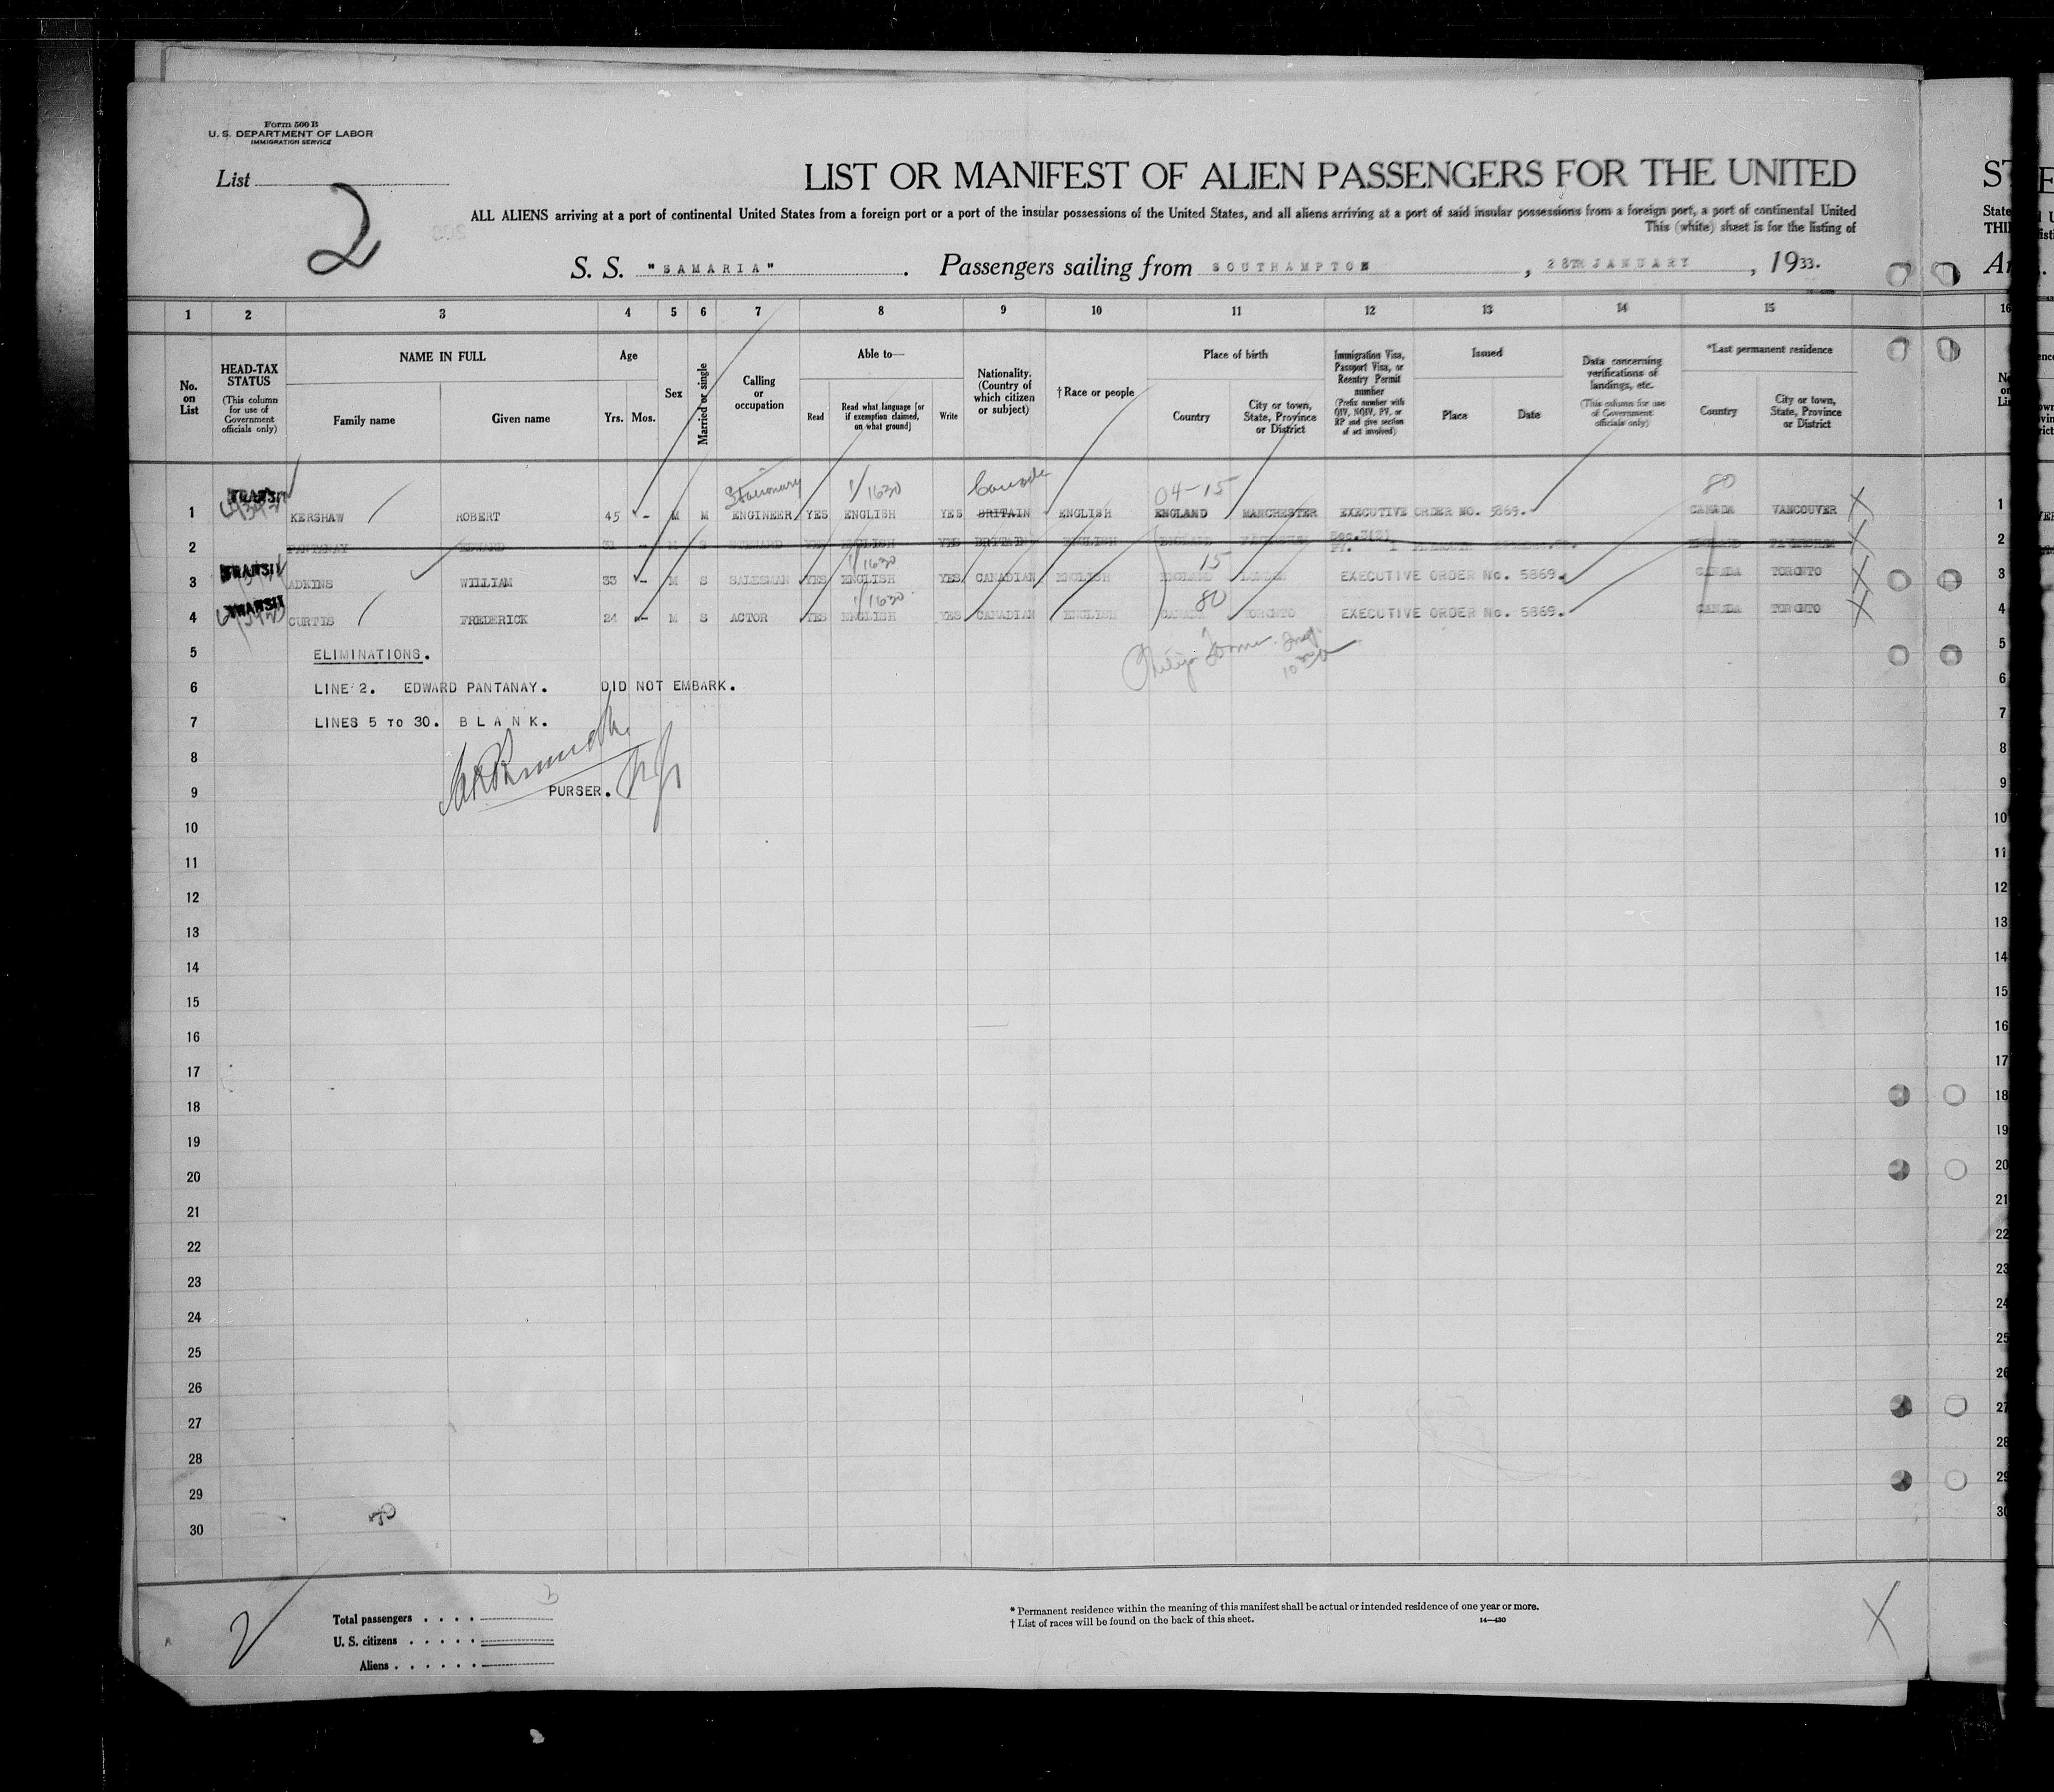 Form 500 B
U. S. DEPARTMENT OF LABOR
IMMIGRATION SERVICE
List
2
LIST OR MANIFEST OF ALIEN PASSENGERS FOR THE UNITED
ALL ALIENS arriving at a port of continental United States from a foreign port or a port of the insular possessions of the United States, and all aliens arriving at a port of said insular possessions from a foreign port, a port of continental United
This (white) sheet is for the listing of
S. S. "SAMARIA". Passengers sailing from SOUTHAMPTON, 28TH JANUARY, 1933.
1 2 3 4 5 6 7 8 9 10 11 12 13 14 15
No. on List
HEAD-TAX STATUS
(This column for use of Government officials only)
NAME IN FULL
Family name Given name
Age
Yrs. Mos.
Sex
Married or single
Calling or occupation
Able to—
Read
Read what language [or if exemption claimed, on what ground]
Write
Nationality. (Country of which citizen or subject)
† Race or people
Place of birth
Country
City or town, State, Province or District
Immigration Visa, Passport Visa, or Reentry Permit number
(Prefix number with QIV, NQIV, PV, or RP and give section of act involved)
Issued
Place Date
Data concerning verifications of landings, etc.
(This column for use of Government officials only)
*Last permanent residence
Country
City or town, State, Province or District
TRANSIT Stationary 1/1630 Canada 04-15 80
1 KERSHAW ROBERT 45 - M M ENGINEER YES ENGLISH YES BRITAIN ENGLISH ENGLAND MANCHESTER EXECUTIVE ORDER NO. 5869. CANADA VANCOUVER X
2 PANTANAY EDWARD 31 - M S STEWARD YES ENGLISH YES BRITAIN ENGLISH ENGLAND
TRANSIT 1/1630 15
3 ADKINS WILLIAM 33 - M S SALESMAN YES ENGLISH YES CANADIAN ENGLISH ENGLAND LONDON EXECUTIVE ORDER No. 5869. CANADA TORONTO X
TRANSIT 1/1630 80
4 CURTIS FREDERICK 24 - M S ACTOR YES ENGLISH YES CANADIAN ENGLISH CANADA TORONTO EXECUTIVE ORDER No. 5869. CANADA TORONTO X
5 ELIMINATIONS.
6 LINE 2. EDWARD PANTANAY. DID NOT EMBARK.
7 LINES 5 TO 30. BLANK.
8
9 PURSER.
10
11
12
13
14
15
16
17
18
19
20
21
22
23
24
25
26
27
28
29
30
2
Total passengers
U. S. citizens
Aliens
* Permanent residence within the meaning of this manifest shall be actual or intended residence of one year or more.
† List of races will be found on the back of this sheet.
14—430
X